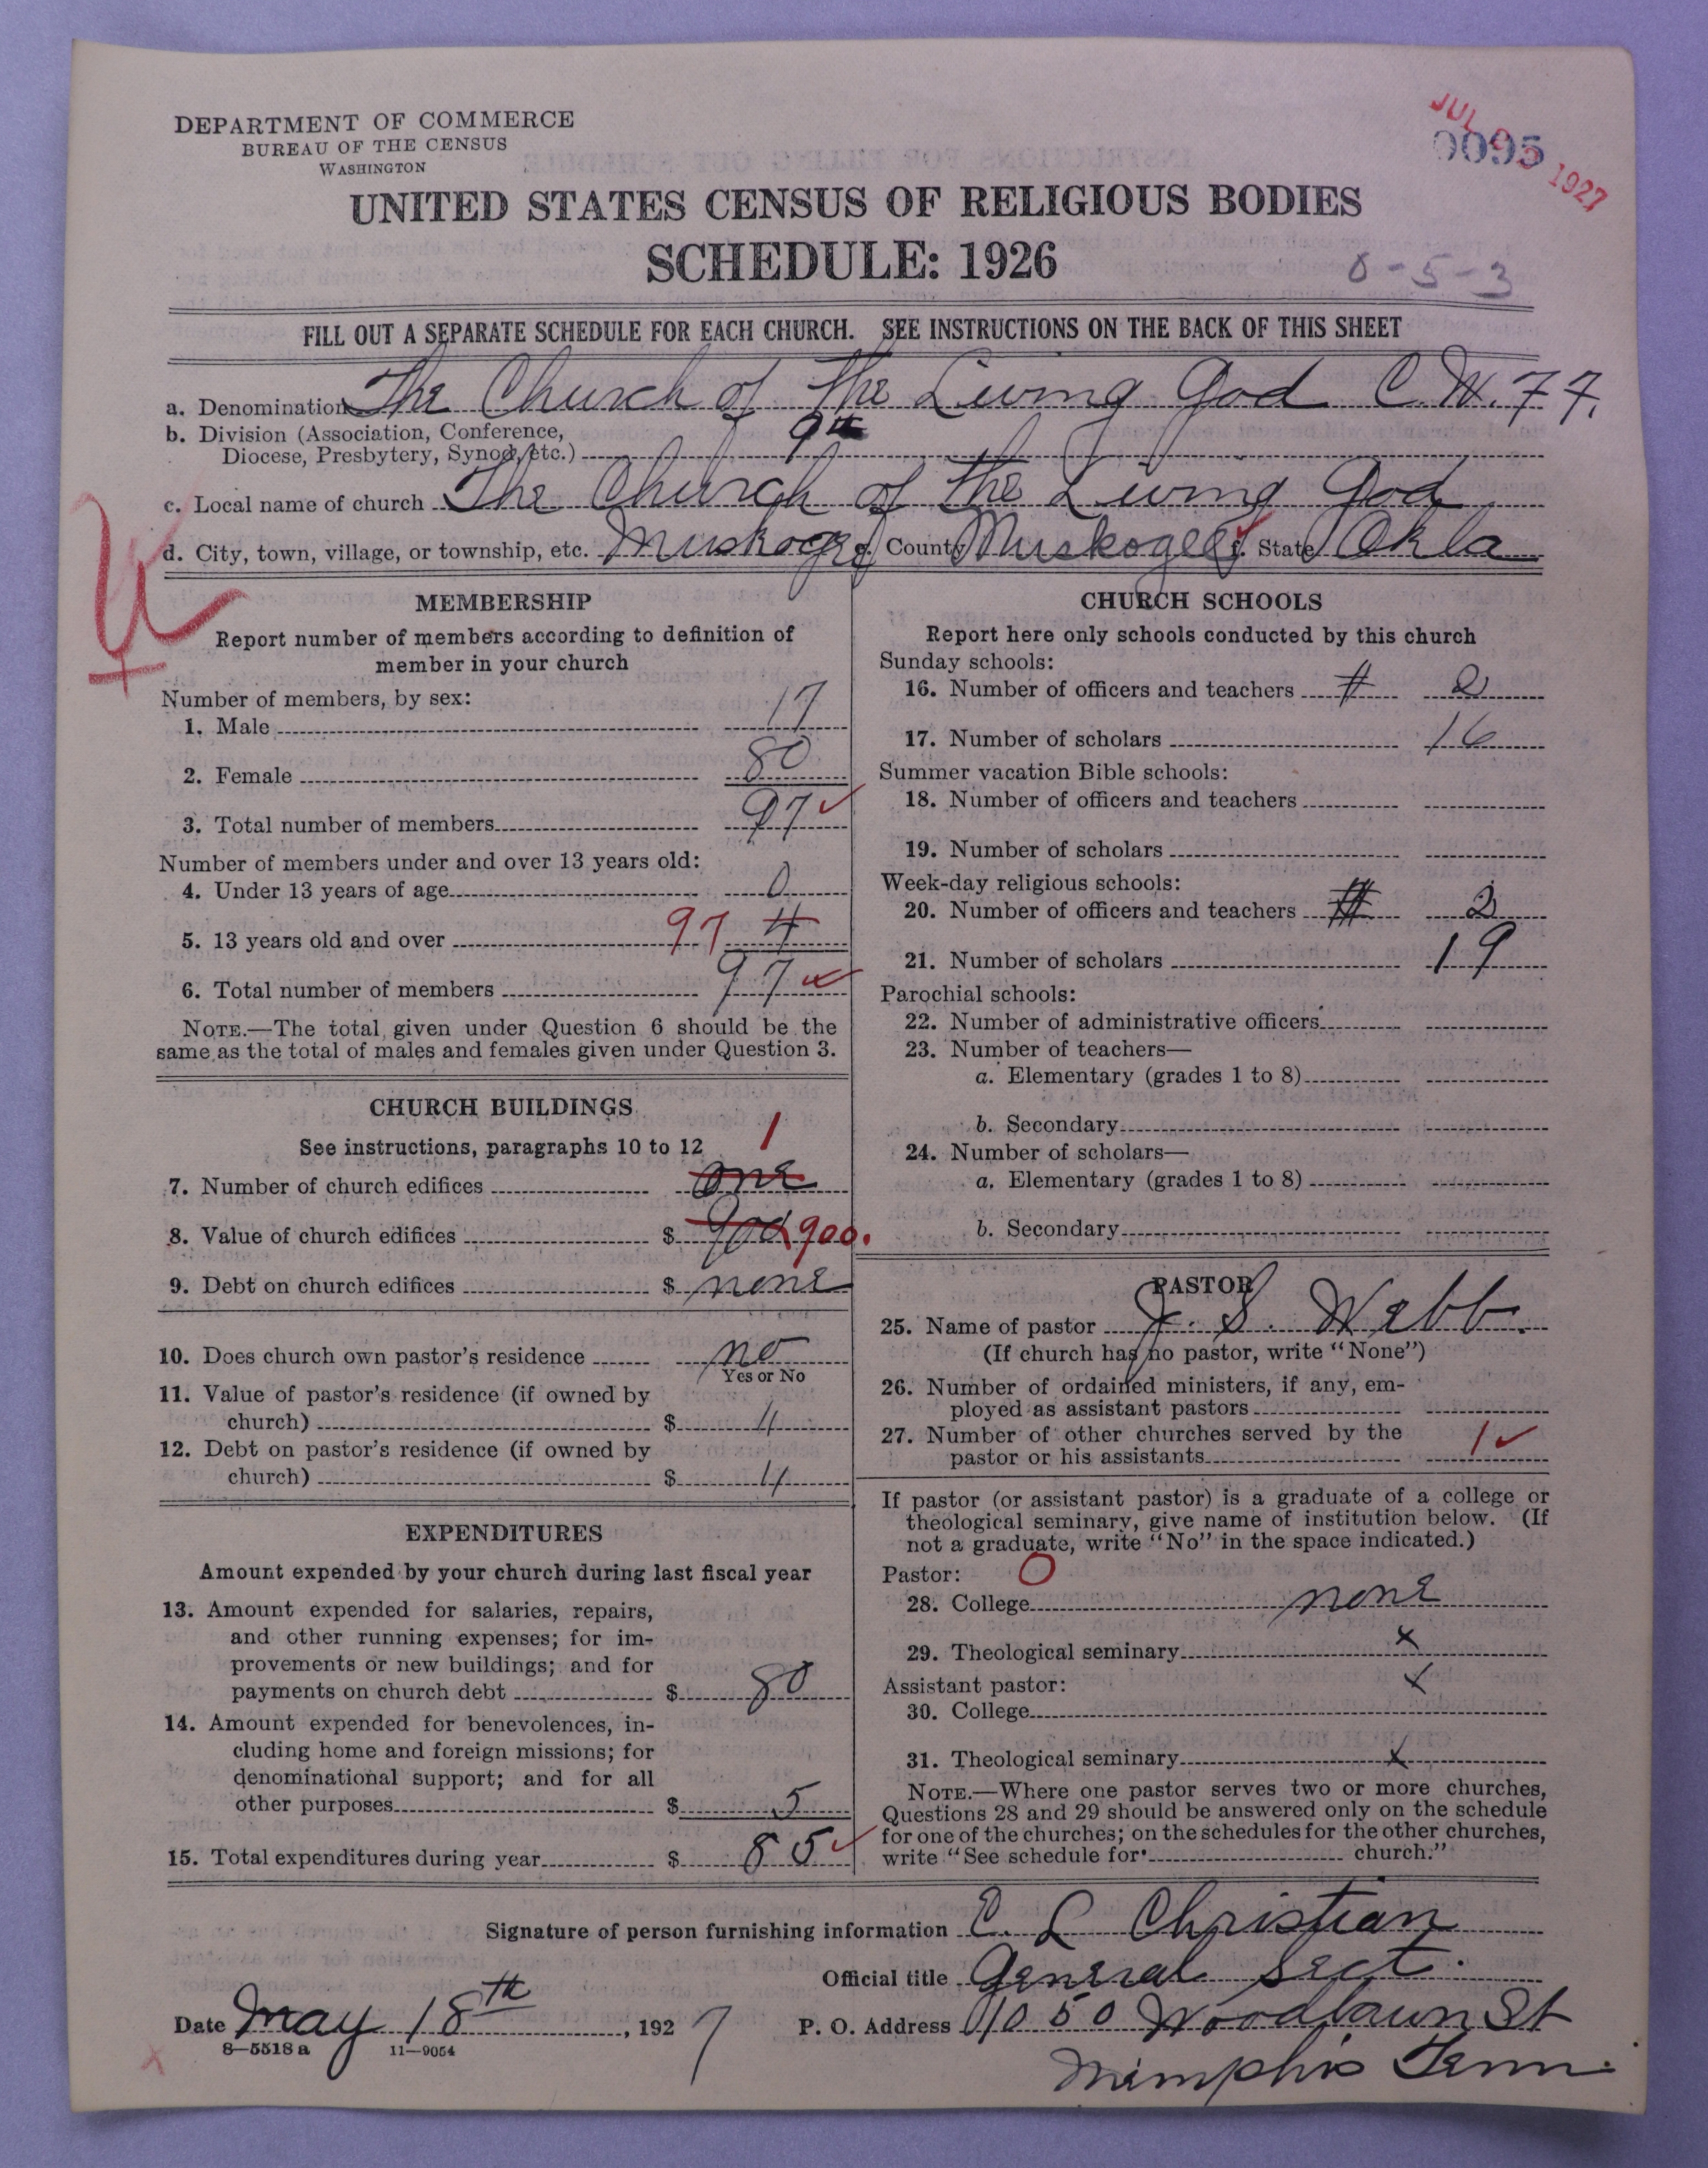 DEPARTMENT OF COMMERCE
BUREAU OF THE CENSUS
WASHINGTON
JUL 1927
0095
UNITED STATES CENSUS OF RELIGIOUS BODIES
SCHEDULE: 1926
0-5-3
FILL OUT A SEPARATE SCHEDULE FOR EACH CHURCH. SEE INSTRUCTIONS ON THE BACK OF THIS SHEET
a. Denomination The Church of the Living God C.W.F.F.
b. Division (Association, Conference,
Diocese, Presbytery, Synod, etc.) 9th
c. Local name of church The Church of the Living God
d. City, town, village, or township, etc. Muskogee e. County Muskogee f. State Okla
MEMBERSHIP
Report number of members according to definition of
member in your church
Number of members, by sex:
1. Male 17
2. Female 80
3. Total number of members 97 ✓
Number of members under and over 13 years old:
4. Under 13 years of age 0
5. 13 years old and over 97
6. Total number of members 97 ✓
NOTE.—The total given under Question 6 should be the
same as the total of males and females given under Question 3.
CHURCH BUILDINGS
See instructions, paragraphs 10 to 12
1
7. Number of church edifices one
8. Value of church edifices $ 900 900.
9. Debt on church edifices $ none
10. Does church own pastor's residence no
Yes or No
11. Value of pastor's residence (if owned by
church) $ 4
12. Debt on pastor's residence (if owned by
church) $ 4
EXPENDITURES
Amount expended by your church during last fiscal year
13. Amount expended for salaries, repairs,
and other running expenses; for im-
provements or new buildings; and for
payments on church debt $ 80
14. Amount expended for benevolences, in-
cluding home and foreign missions; for
denominational support; and for all
other purposes $ 5
15. Total expenditures during year $ 85 ✓
CHURCH SCHOOLS
Report here only schools conducted by this church
Sunday schools:
16. Number of officers and teachers # 2
17. Number of scholars 16
Summer vacation Bible schools:
18. Number of officers and teachers
19. Number of scholars
Week-day religious schools:
20. Number of officers and teachers # 2
21. Number of scholars 19
Parochial schools:
22. Number of administrative officers
23. Number of teachers—
a. Elementary (grades 1 to 8)
b. Secondary
24. Number of scholars—
a. Elementary (grades 1 to 8)
b. Secondary
PASTOR
25. Name of pastor J. S. Webb.
(If church has no pastor, write "None")
26. Number of ordained ministers, if any, em-
ployed as assistant pastors
27. Number of other churches served by the
pastor or his assistants 1 ✓
If pastor (or assistant pastor) is a graduate of a college or
theological seminary, give name of institution below. (If
not a graduate, write "No" in the space indicated.)
Pastor: O
28. College none
29. Theological seminary x
Assistant pastor: x
30. College
31. Theological seminary x
NOTE.—Where one pastor serves two or more churches,
Questions 28 and 29 should be answered only on the schedule
for one of the churches; on the schedules for the other churches,
write "See schedule for church."
Signature of person furnishing information C. L Christian
Official title General Sect.
Date May 18th, 1927 P. O. Address 1050 Woodlawn St
8—5518 a 11—9054
Memphis Tenn.